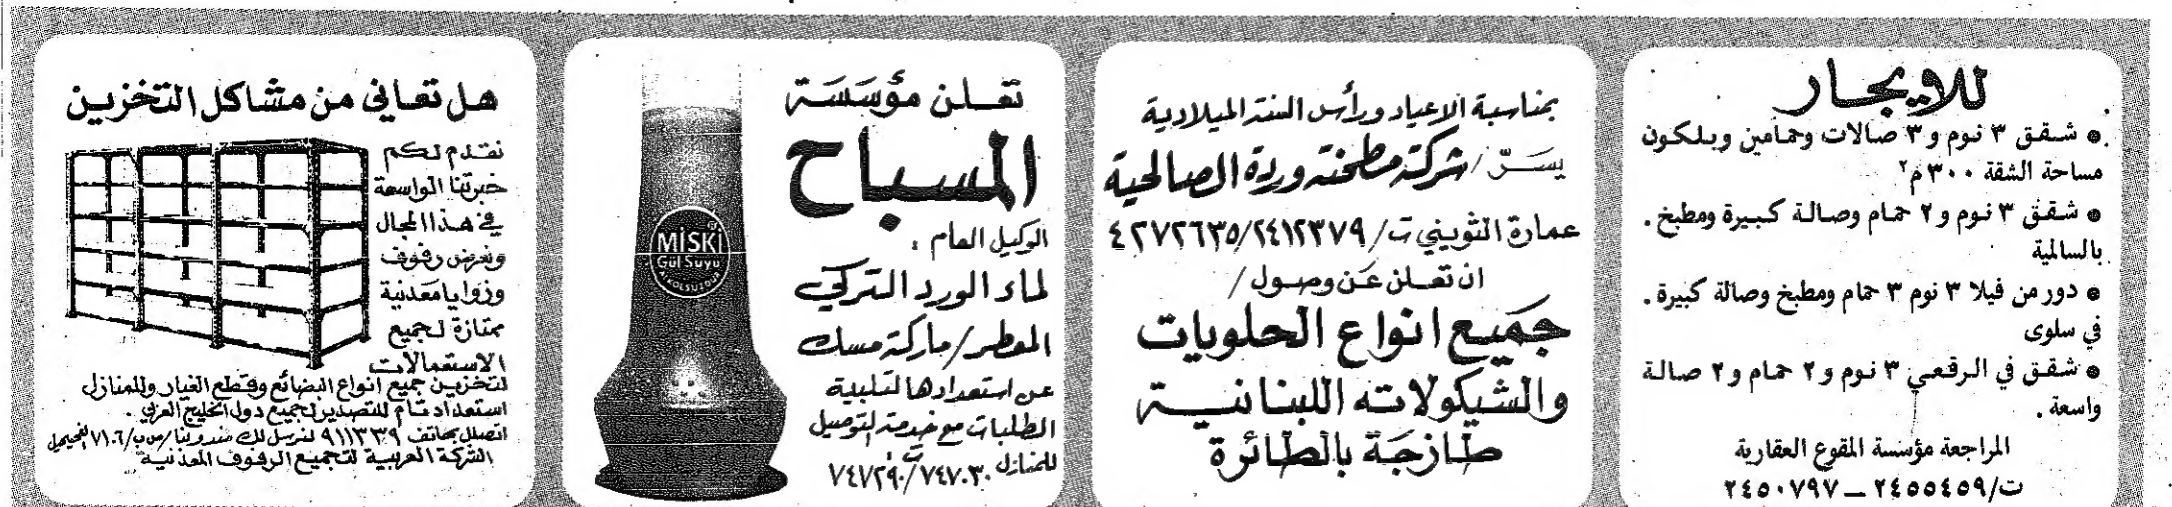 للايجار
● شقق ٣ نوم و ٣ صالات وحمامين وبلكون
مساحة الشقة ٣٠٠ م٢
● شقق ٣ نوم و ٢ حمام وصالة كبيرة ومطبخ .
بالسالمية
● دور من فيلا ٣ نوم ٣ حمام ومطبخ وصالة كبيرة .
في سلوى
● شقق في الرقعي ٣ نوم و ٢ حمام و ٢ صالة
واسعة .
المراجعة مؤسسة المقوع العقارية
ت/٢٤٥٥٤٥٩ — ٢٤٥٠٧٩٧
بمناسبة الاعياد ورأس السنة الميلادية
يسرّ/ شركة مطحنة وردة الصالحية
عمارة الثويني ت/٢٤١٢٣٧٩/٤٢٧٢٦٣٥
ان تعلن عن وصول/
جميع انواع الحلويات
والشيكولاته اللبنانية
طازجة بالطائرة
تعلن مؤسسة
المسباح
الوكيل العام :
لماء الورد التركي
المعطر/ماركة مسك
عن استعدادها لتلبية
الطلبات مع خدمة التوصيل
للمنازل ت ٧٤٧٠٣٠/٧٤٧٢٩٠
MiSKi
Gül Suyu
ALKOLSÜZDÜR
هل تعاني من مشاكل التخزين
نقدم لكم
خبرتنا الواسعة
في هذا المجال
ونعرض رفوف
وزوايا معدنية
ممتازة لجميع
الاستعمالات
لتخزين جميع انواع البضائع وقطع الغيار وللمنازل
استعداد تام للتصدير لجميع دول الخليج العربي .
اتصل بهاتف ٩١١٣٣٩ لنرسل لك مندوبنا/ص ب/٧١٠٦ الفحيحيل
الشركة العربية لتجميع الرفوف المعدنية